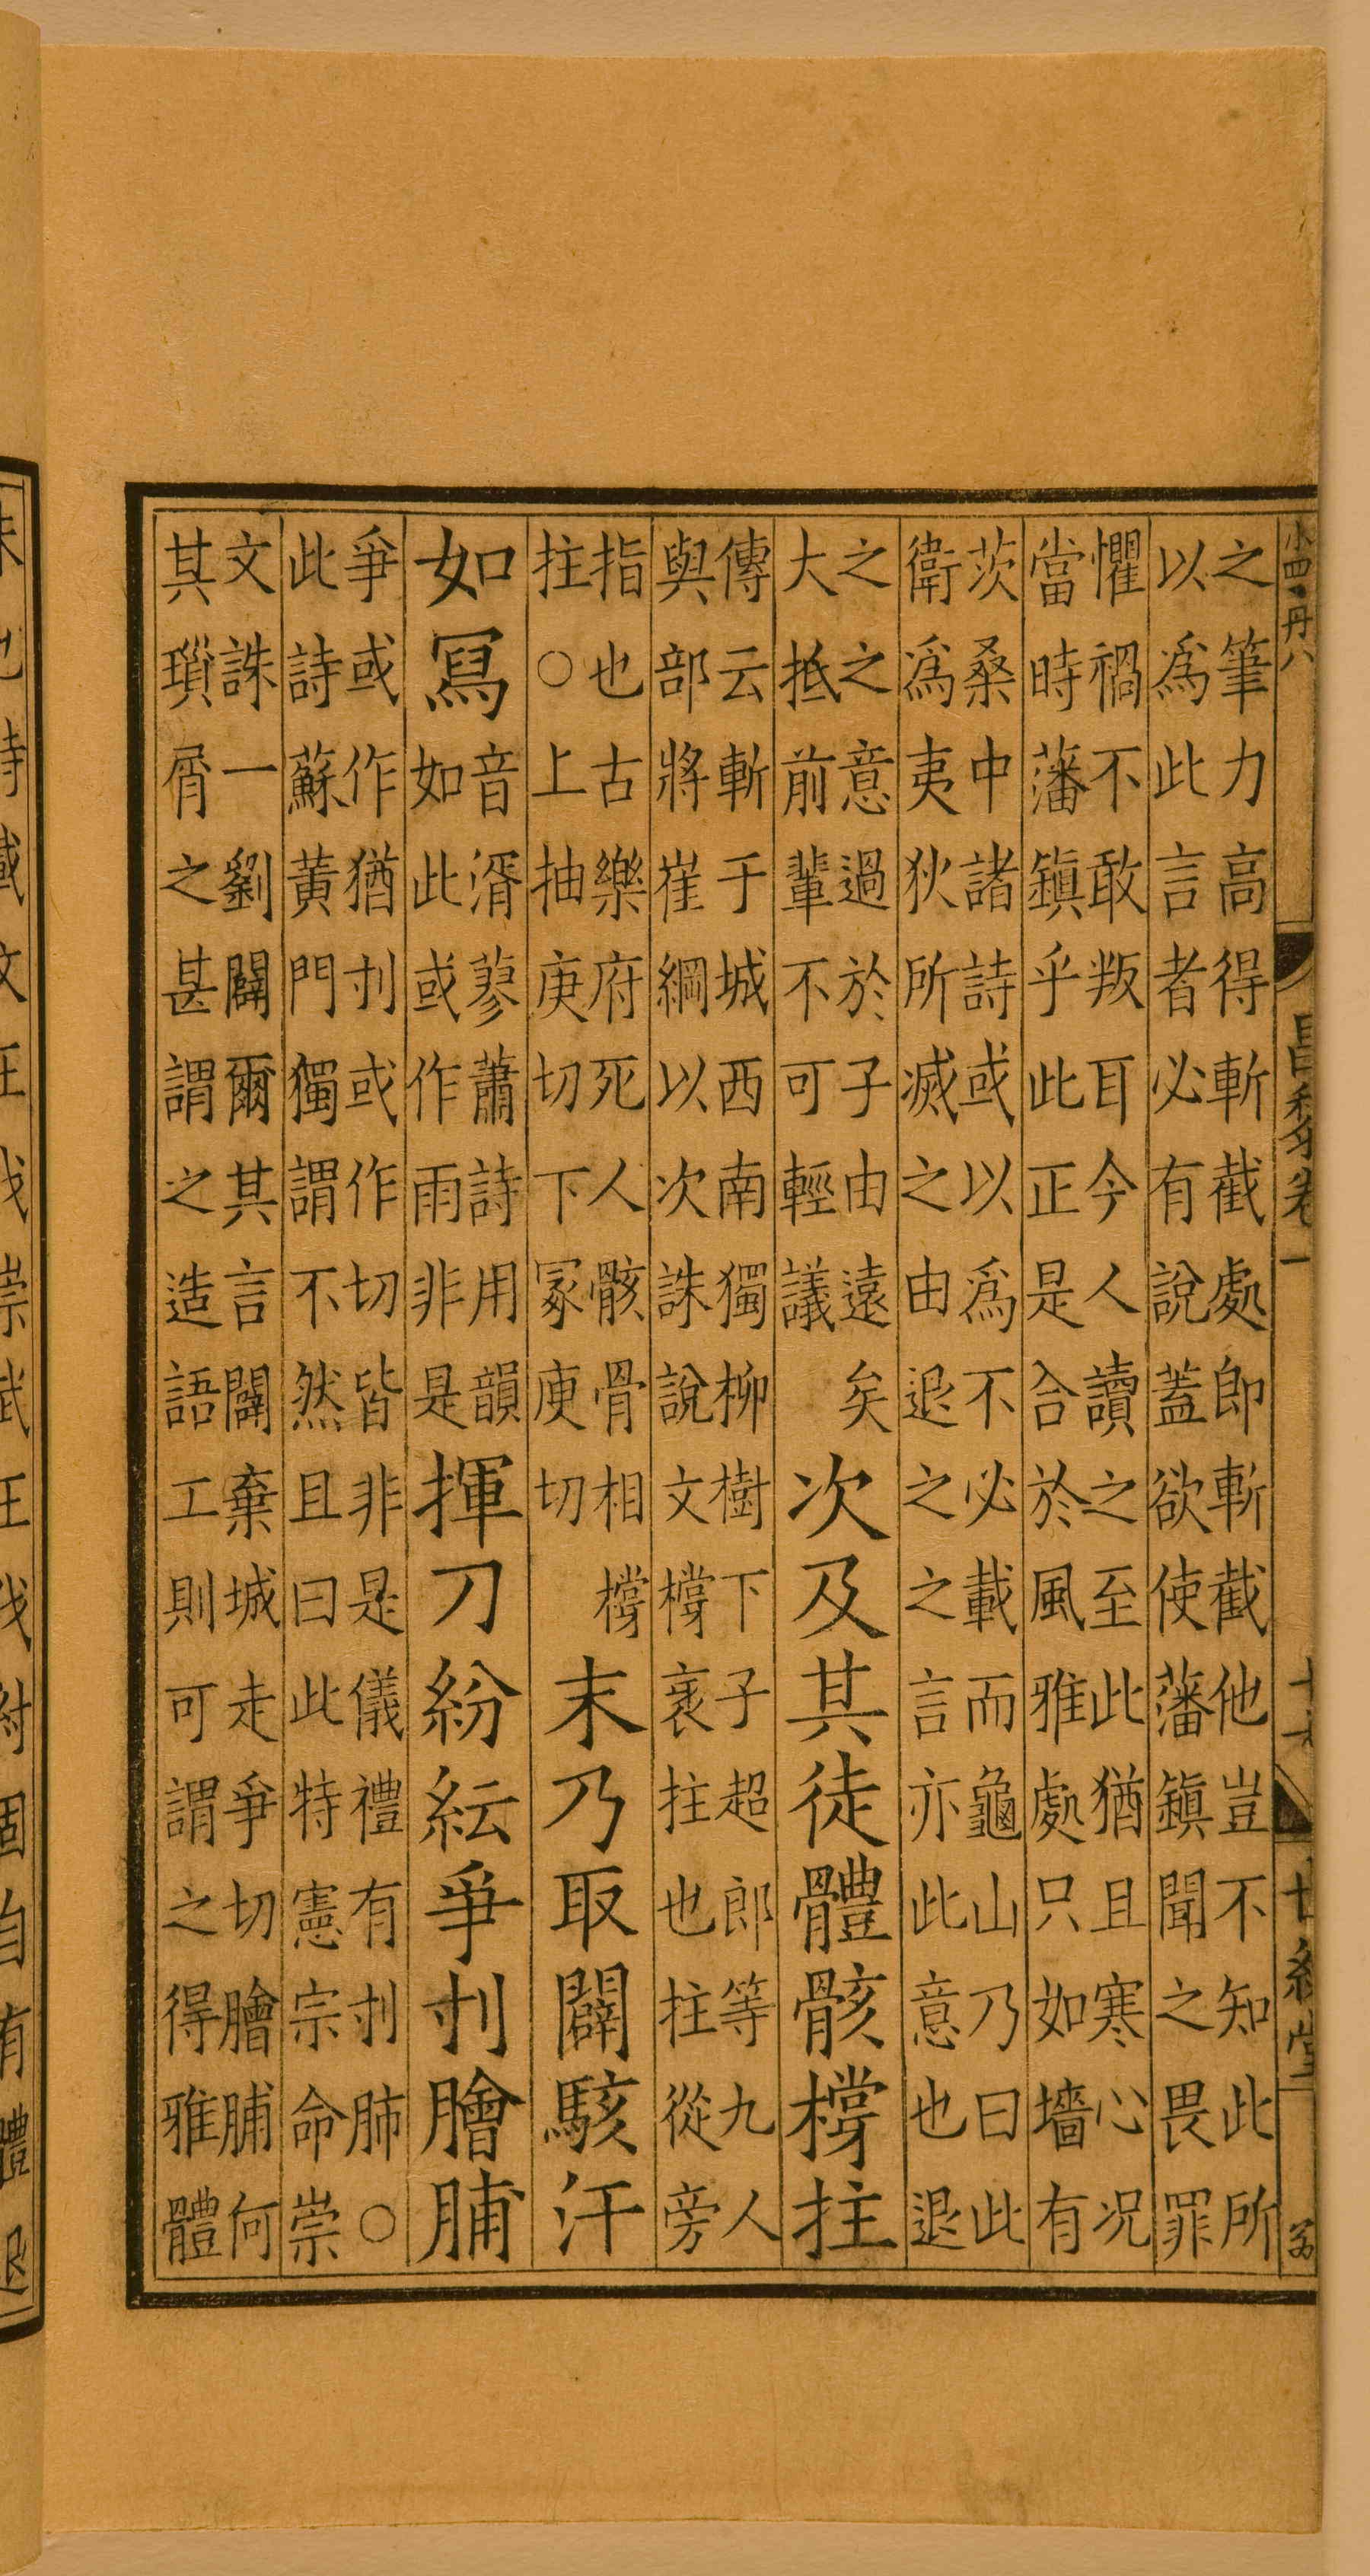 之筆力高得斬截處即斬截他豈不知此所
以為此言者必有說蓋欲使藩鎮聞之畏罪
懼禍不敢叛耳今人讀之至此猶且寒心况
當時藩鎮乎此正是合於風雅處只如墻有
茨桑中諸詩或以為不必載而龜山乃曰此
衛為夷狄所滅之由退之之言亦此意也退
之之意過於子由遠矣
大抵前輩不可輕議
次及其徒體骸撐拄
傳云斬于城西南獨柳樹下子超郎等九人
與部將崔綱以次誅說文撐衺拄也拄從旁
指也古樂府死人骸骨相撐
拄○上抽庚切下冢庾切
末乃取闢駭汗
如寫
音湑蓼蕭詩用韻
如此或作雨非是
揮刀紛紜爭刌膾脯
爭或作猶刌或作切皆非是儀禮有刌肺○
此詩蘇黃門獨謂不然且曰此特憲宗命崇
文誅一劉闢爾其言闢棄城走爭切膾脯何
其瑣屑之甚謂之造語工則可謂之得雅體
小四・丹八
昌黎卷一
十六
廿